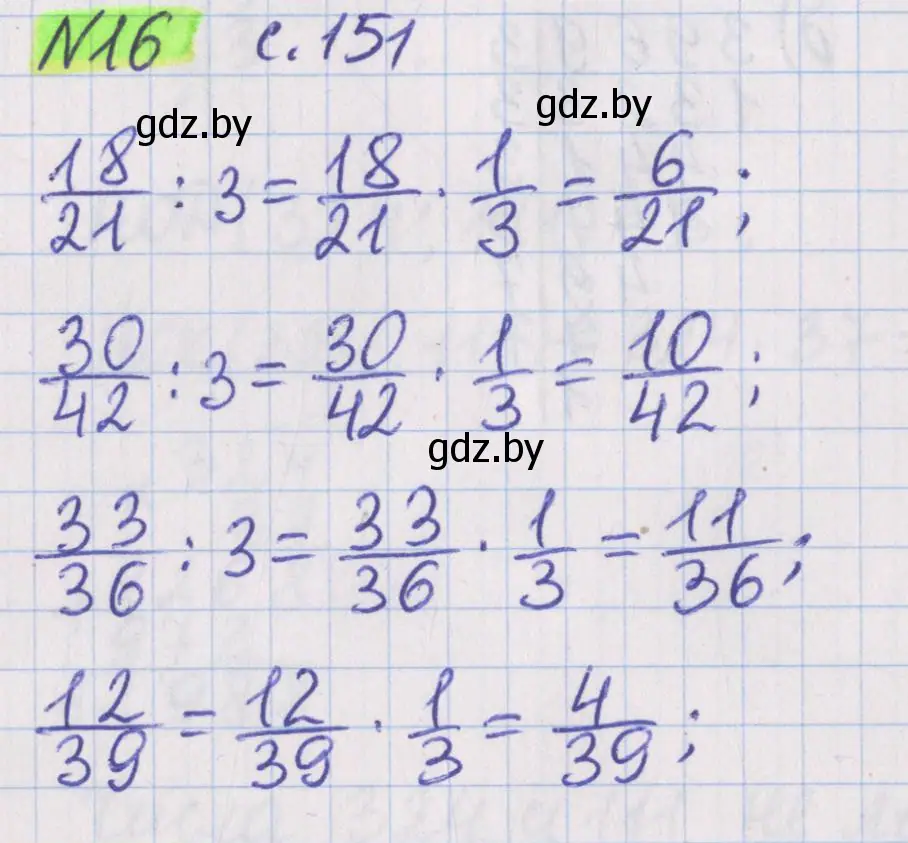 N16 с. 151
gdz.by gdz.by
18/21 : 3 = 18/21 · 1/3 = 6/21;
30/42 : 3 = 30/42 · 1/3 = 10/42;
gdz.by
33/36 : 3 = 33/36 · 1/3 = 11/36;
12/39 = 12/39 · 1/3 = 4/39;